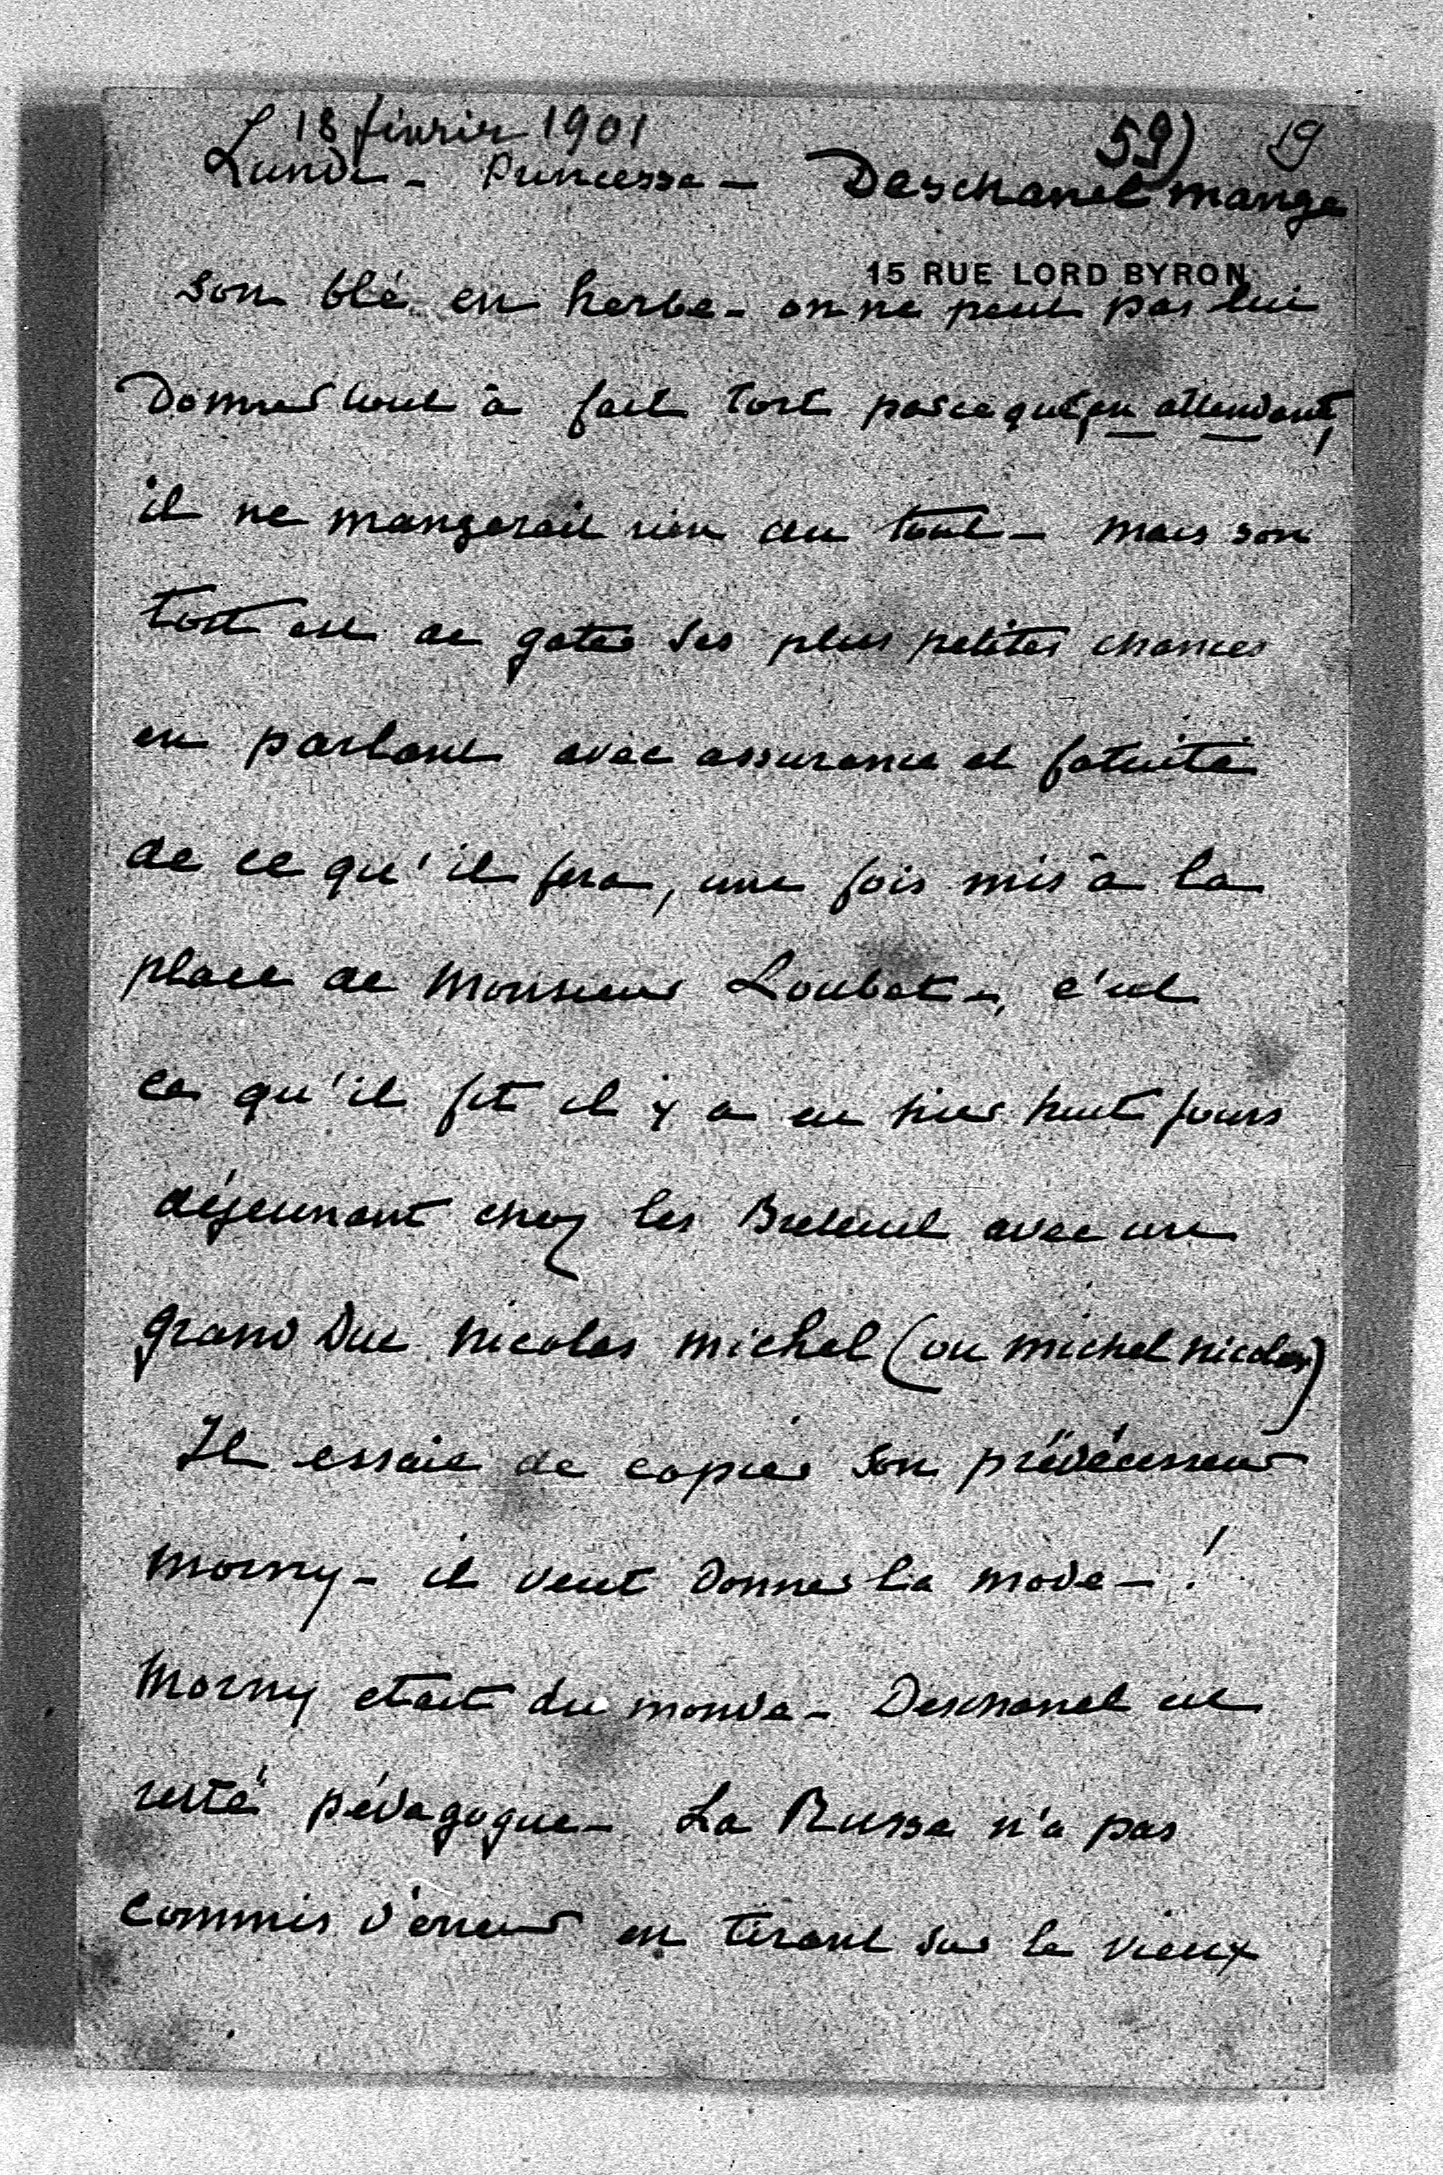 18 février 1901
59) 19
Lundi - Princesse - Deschanel mange
15 RUE LORD BYRON
son blé en herbe - on ne peut pas lui
donner tout à fait tort parce qu'en attendant,
il ne mangerait rien du tout - mais son
tort est de gater ses plus petites chances
en parlant avec assurance et fatuité
de ce qu'il fera, une fois mis à la
place de Monsieur Loubet -, c'est
ce qu'il fit il y a eu hier huit jours
déjeunant chez les Breteuil avec un
grand Duc Nicolas Michel (ou Michel Nicolas)
Il essaie de copier son prédécesseur
Morny - il veut donner la mode - !
Morny etait du monde - Deschanel est
resté pédagogue - La Russe n'a pas
commis d'erreur en tirant sur le vieux